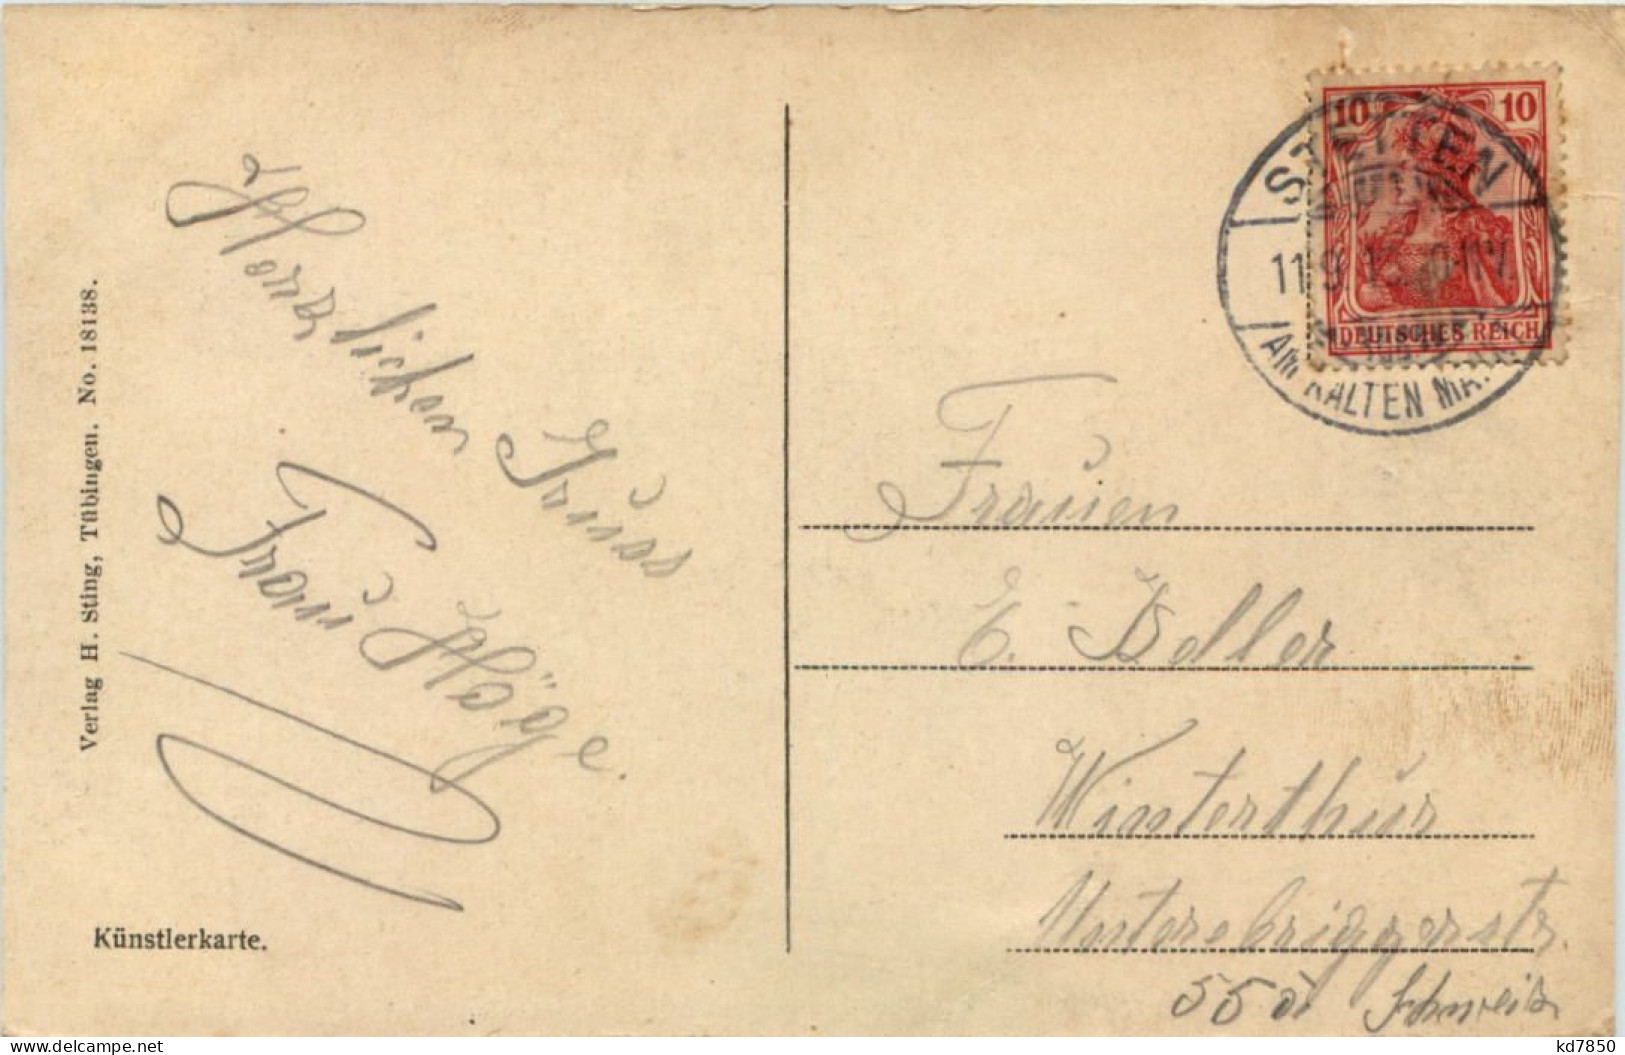 Verlag H. Sting, Tübingen. No. 18138.
Herzlichen Gruss
Frau Höge.
Künstlerkarte.
10 10
DEUTSCHES REICH
STETTEN
11.9.1
AM KALTEN
Frauen
E. Beller
Winterthur
55 Schweiz
kd7850